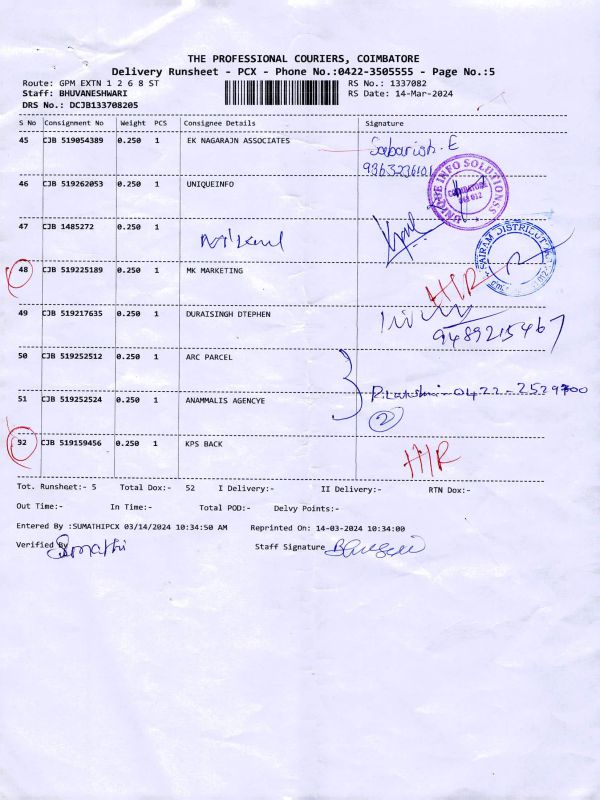 THE PROFESSIONAL COURIERS, COIMBATORE
Delivery Runsheet - PCX - Phone No.:0422-3505555 - Page No.:5
Route: GPM EXTN 1 2 6 8 ST RS No.: 1337082
Staff: BHUVANESHWARI RS Date: 14-Mar-2024
DRS No.: DCJB133708205
S No Consignment No Weight PCS Consignee Details Signature
45 CJB 519054389 0.250 1 EK NAGARAJN ASSOCIATES Sabarish. E
9363236101
46 CJB 519262053 0.250 1 UNIQUEINFO
UNIQUE INFO SOLUTIONSS
COIMBATORE
641 012
47 CJB 1485272 0.250 1
SAIRAM DISTRIBUT
48 CJB 519225189 0.250 1 MK MARKETING HIR
49 CJB 519217635 0.250 1 DURAISINGH DTEPHEN
9489215467
50 CJB 519252512 0.250 1 ARC PARCEL
0422-2529700
51 CJB 519252524 0.250 1 ANAMMALIS AGENCYE
2
52 CJB 519159456 0.250 1 KPS BACK HIR
Tot. Runsheet:- 5 Total Dox:- 52 I Delivery:- II Delivery:- RTN Dox:-
Out Time:- In Time:- Total POD:- Delvy Points:-
Entered By :SUMATHIPCX 03/14/2024 10:34:50 AM Reprinted On: 14-03-2024 10:34:00
Verified By Sumathi Staff Signature